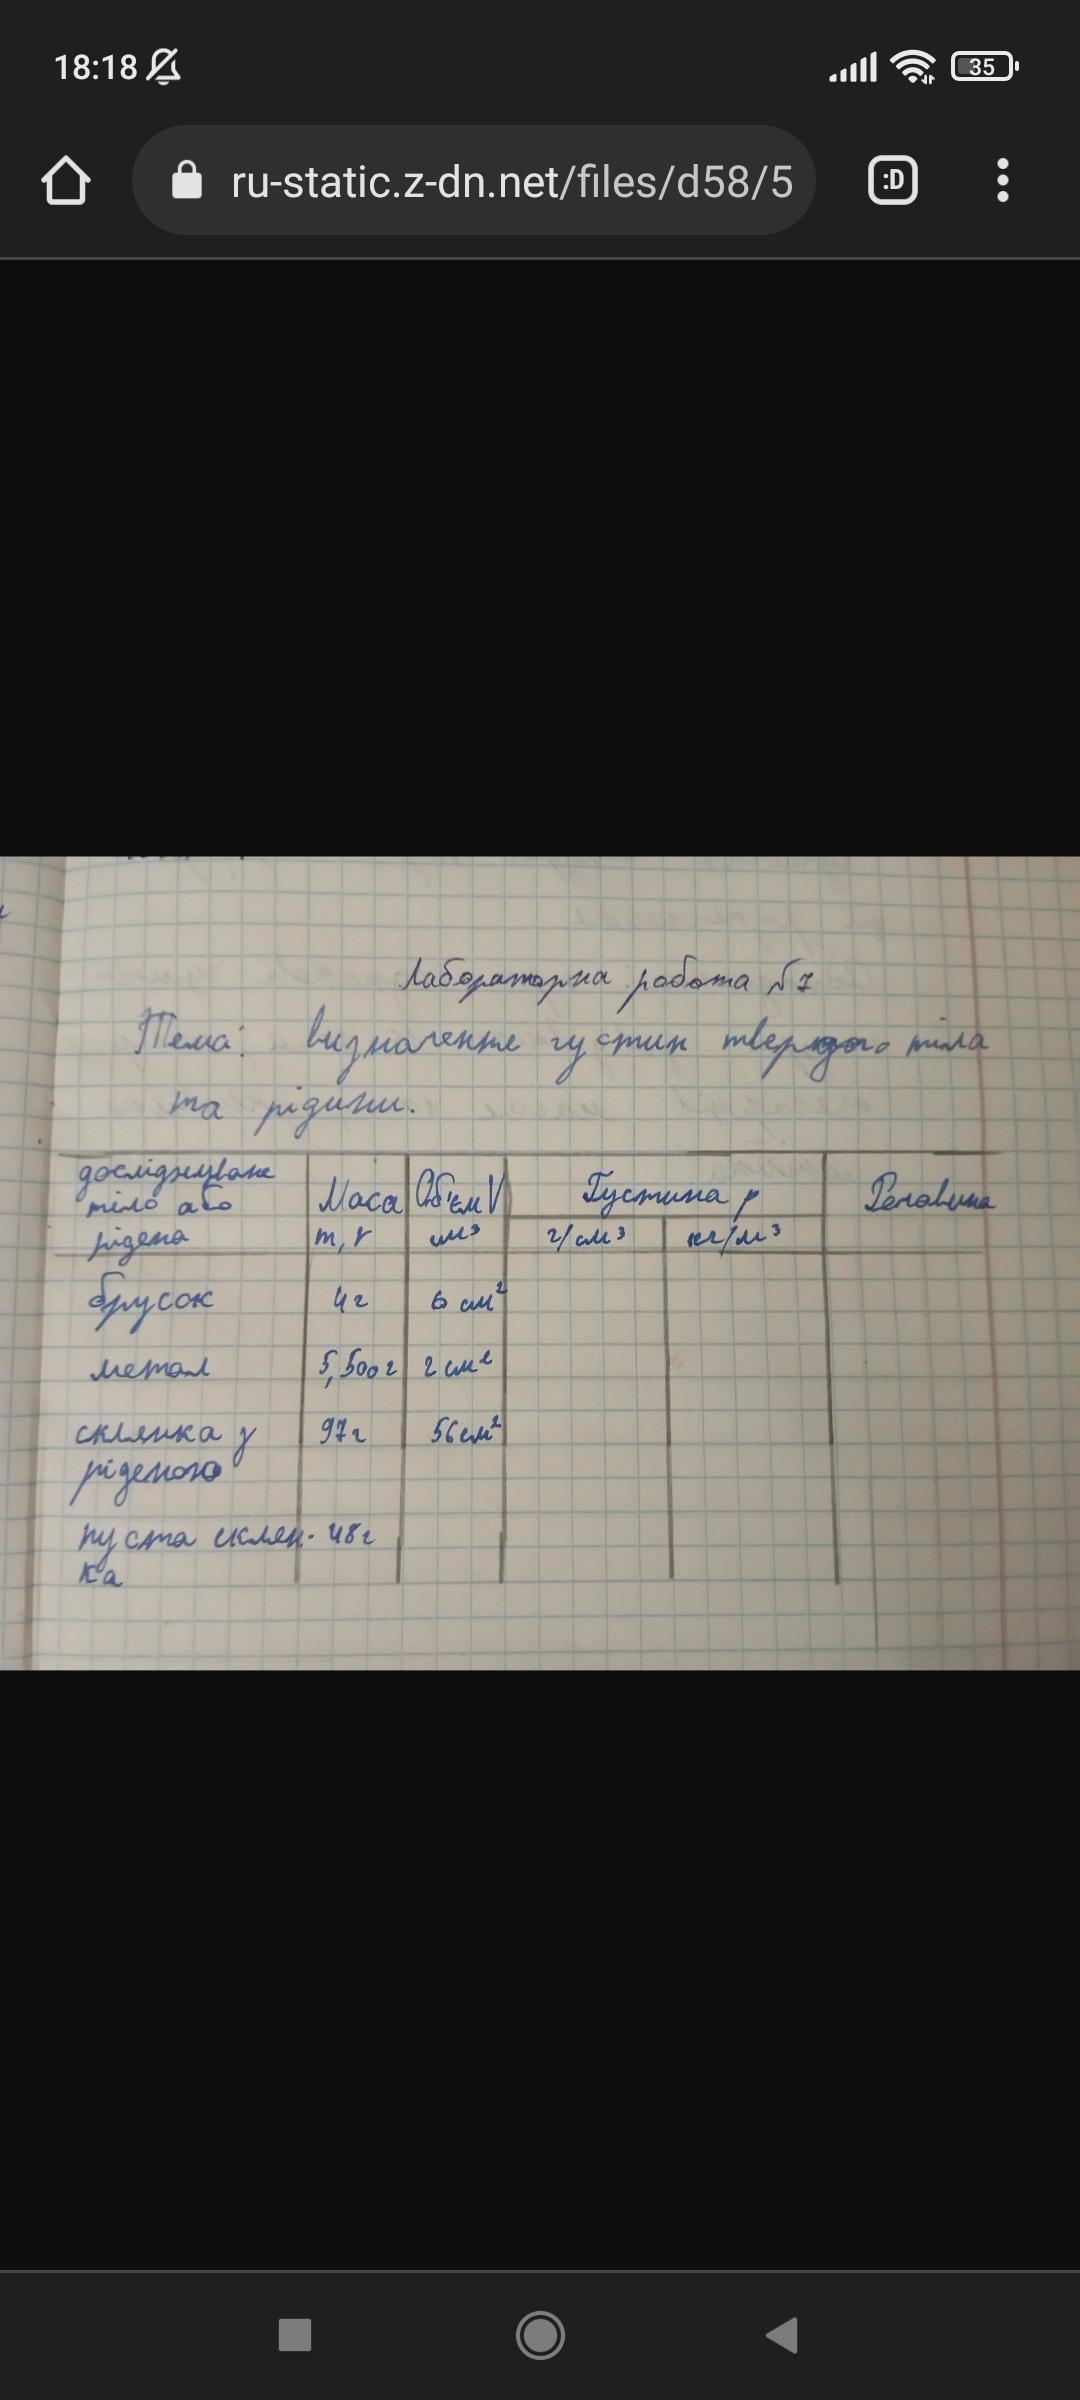 18:18
35
ru-static.z-dn.net/files/d58/5
:D
Лабораторна робота №7
Тема: визначення густин твердого тіла
та рідини.
досліджуване тіло або рідена
Маса m, г
Об'єм V см³
Густина ρ
г/см³
кг/м³
Речовина
брусок 4г 6 см²
метал 5,500г 2 см²
склянка з 97г 56см²
ріденою
пуста склян- 48г
ка